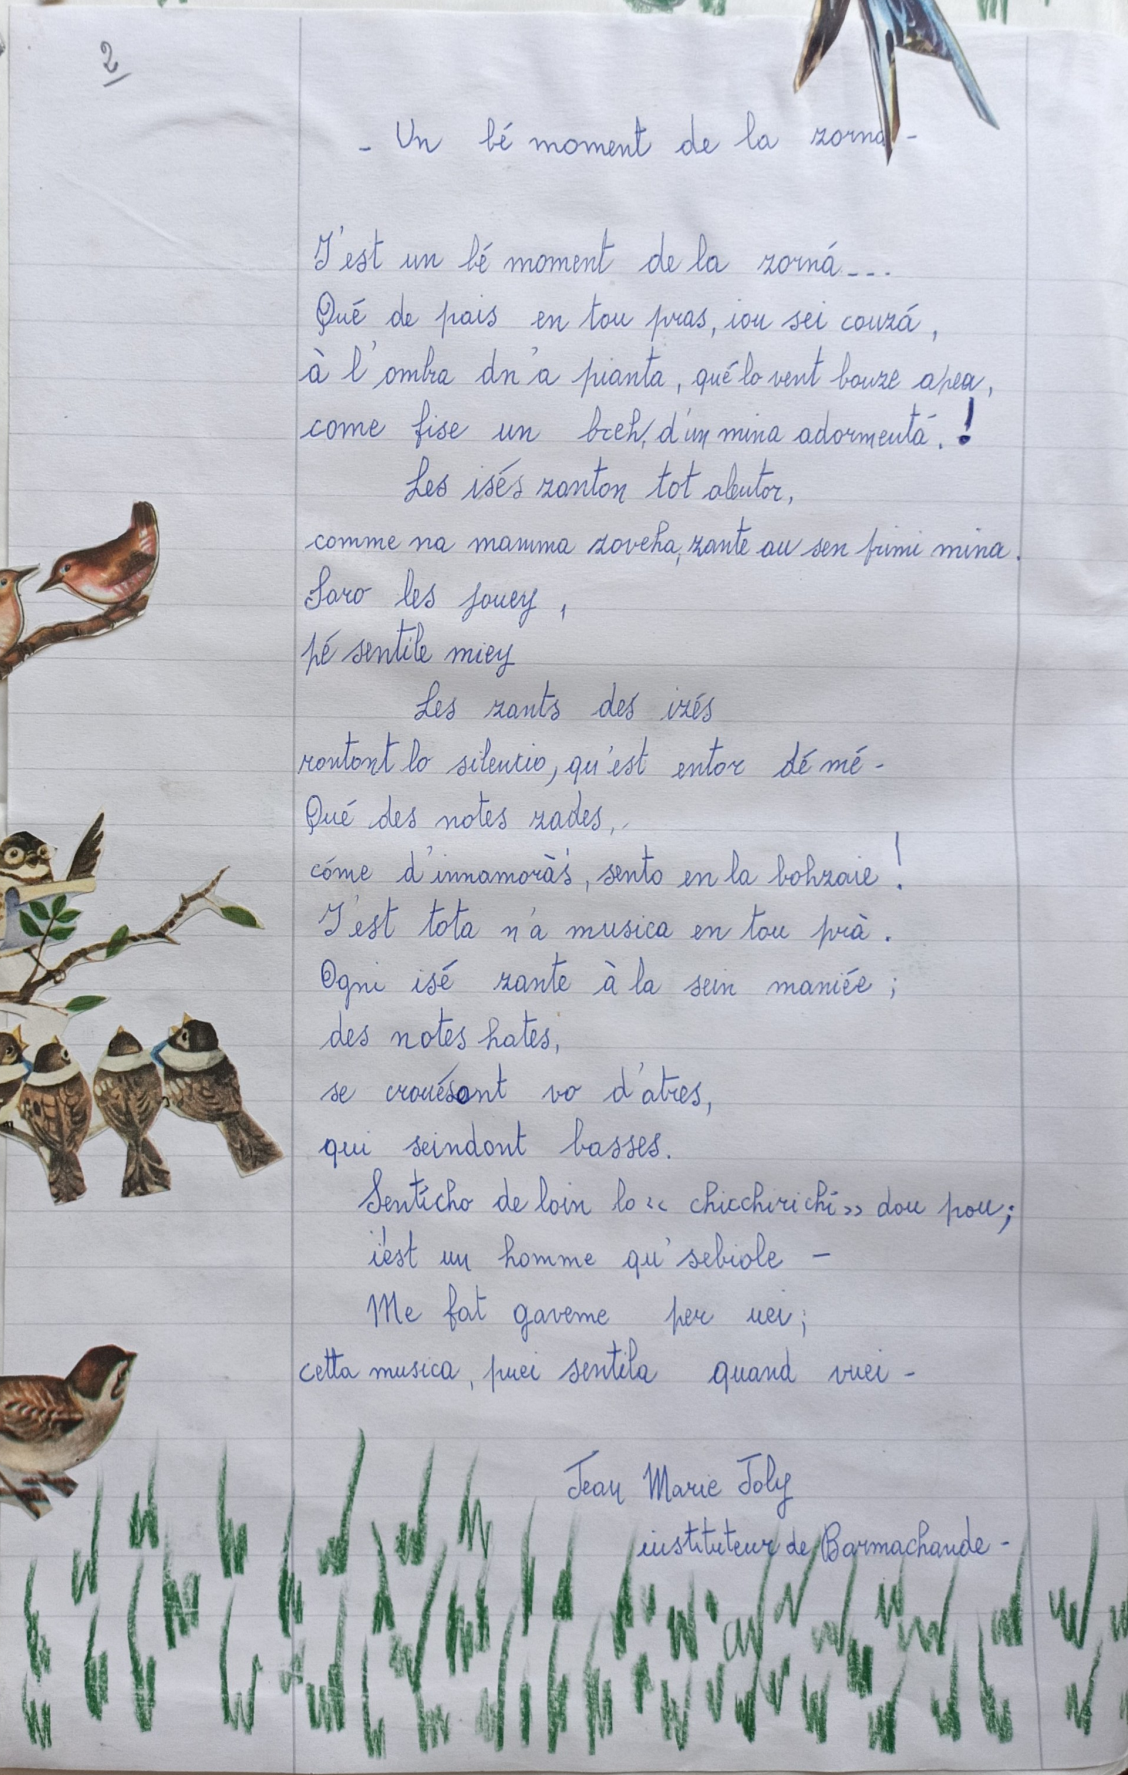 2
- Un bé moment de la zorná -
J'est un bé moment de la zorná...
Qué de pais en tou pras, iou sei couzá,
à l'ombra dn'a pianta, qué lo vent bouze apea,
come fise un breh, d'un mina adormentá.!
Les isés zanton tot alentor,
comme na mamma zoveha, zante au sen primi mina.
Saro les jouey,
pé sentile miey
Les zants des izés
rontont lo silencio, qu'est entor dé mé -
Qué des notes zades,
cóme d'innamoràs, sento en la bohzaie!
J'est tota n'a musica en tou prà.
Ogni isé zante à la sein maniée;
des notes hates,
se crouésont vo d'atres,
qui seindont basses.
Senticho de loin lo « chicchirichi » dou pou;
iést un homme qu'sebiole -
Me fat gaveme per uei;
cetta musica, puei sentila quand vuei -
Jean Marie Joly
instituteur de Barmachande -